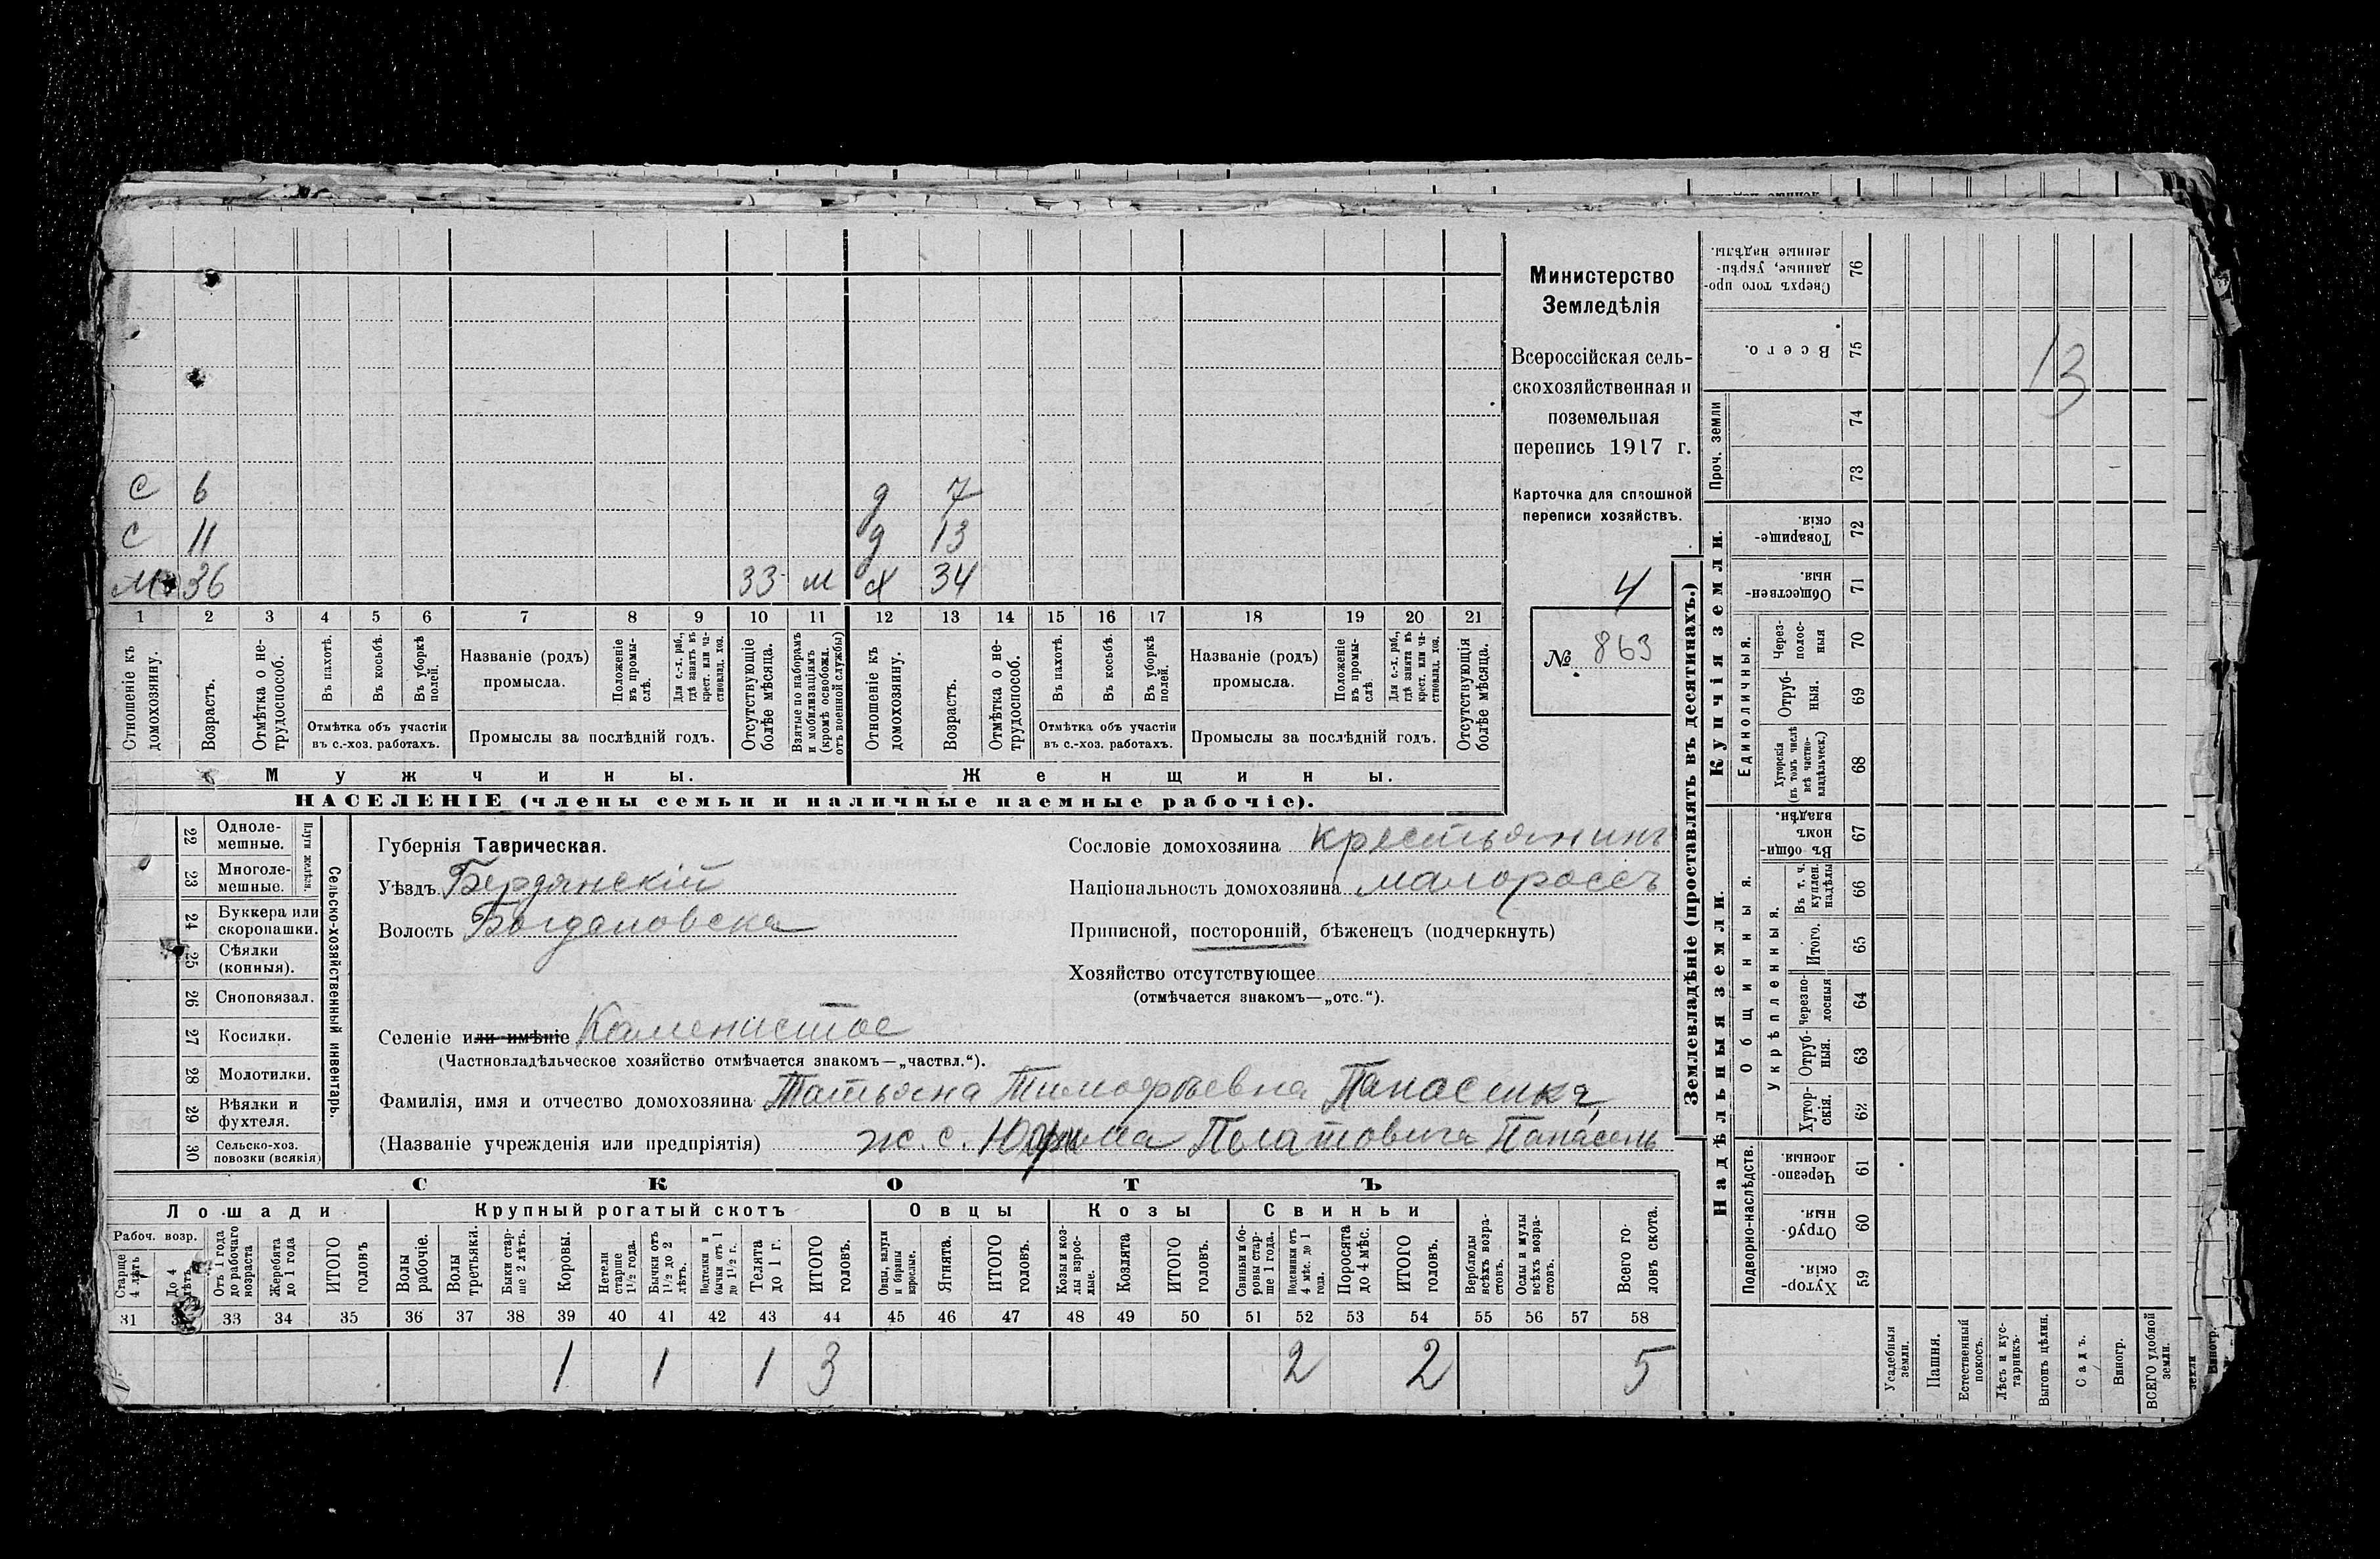 С 6 д 7
С 11 д 13
М 36 33 м Х 34
1 2 3 4 5 6 7 8 9 10 11 12 13 14 15 16 17 18 19 20 21
Отношеніе къ домохозяину.
Возрастъ.
Отмѣтка о нетрудоспособ.
Въ пахотѣ.
Въ косьбѣ.
Въ уборкѣ полей.
Отмѣтка объ участіи
въ с.-хоз. работахъ.
Названіе (родъ)
промысла.
Положеніе въ промыслѣ.
Для с.-х. раб., гдѣ занятъ въ крест. или частновлад. хоз.
Промыслы за послѣдній годъ.
Отсутствующіе болѣе мѣсяца.
Взятые по наборамъ и мобилизаціямъ (кромѣ освобожд. отъ военной службы)
Отношеніе къ домохозяину.
Возрастъ.
Отмѣтка о нетрудоспособ.
Въ пахотѣ.
Въ косьбѣ.
Въ уборкѣ полей.
Отмѣтка объ участіи
въ с.-хоз. работахъ.
Названіе (родъ)
промысла.
Положеніе въ промыслѣ.
Для с.-х. раб., гдѣ занята въ крест. или частновлад. хоз.
Промыслы за послѣдній годъ.
Отсутствующія болѣе мѣсяца.
Мужчины.
Женщины.
НАСЕЛЕНІЕ (члены семьи и наличные наемные рабочіе).
Министерство
Земледѣлія
Всероссійская сель-
скохозяйственная и
поземельная
перепись 1917 г.
Карточка для сплошной
переписи хозяйствъ.
4
№ 863
22 Одноле-
мешные.
23 Многоле-
мешные.
Плуги желѣз.
24 Буккера или
скоропашки.
25 Сѣялки
(конныя).
26 Сноповязал.
27 Косилки.
28 Молотилки.
29 Вѣялки и
фухтеля.
30 Сельско-хоз.
повозки (всякія)
Сельско-хозяйственный инвентарь.
Губернія Таврическая.
Уѣздъ Бердянскій
Волость Богдановска
Селеніе или имѣніе Каменистое
(Частновладѣльческое хозяйство отмѣчается знакомъ—„частвл.“).
Фамилія, имя и отчество домохозяина Татьяна Тимофѣевна Панасенкя,
(Названіе учрежденія или предпріятія) ж. с.
Сословіе домохозяина крестьянинъ
Національность домохозяина малороссъ
Приписной, посторонній, бѣженецъ (подчеркнуть)
Хозяйство отсутствующее
(отмѣчается знакомъ—„отс.“).
СКОТЪ
Лошади
Крупный рогатый скотъ
Овцы
Козы
Свиньи
Рабоч. возр.
Старше 4 лѣтъ
До 4 лѣтъ
Отъ 1 года до рабочаго возраста
Жеребята до 1 года
ИТОГО головъ
Волы рабочіе.
Волы третьяки.
Быки старше 2 лѣтъ.
Коровы.
Нетели старше 1½ года.
Бычки отъ 1½ до 2 лѣтъ.
Подтелки и бычки отъ 1 до 1½ г.
Телята до 1 г.
ИТОГО головъ.
Овцы, валухи и бараны взрослые.
Ягнята.
ИТОГО головъ.
Козы и козлы взрослые.
Козлята
ИТОГО головъ.
Свиньи и боровы старше 1 года.
Подсвинки отъ 4 мѣс. до 1 года.
Поросята до 4 мѣс.
ИТОГО головъ.
Верблюды всѣхъ возрастовъ.
Ослы и мулы всѣхъ возрастовъ.
Всего головъ скота.
31 33 34 35 36 37 38 39 40 41 42 43 44 45 46 47 48 49 50 51 52 53 54 55 56 57 58
1 1 1 3 2 2 5
Землевладѣніе (проставлять въ десятинахъ.)
Надѣльныя земли.
Купчія земли.
Проч. земли
Сверхъ того проданные, укрѣпленные надѣлы. 76
Всего. 75
74
73
Товарищескія. 72
Общественныя. 71
Единоличныя.
Черезполосныя 70
Отрубныя. 69
Хуторскія (въ томъ числѣ всѣ частновладѣльческ.) 68
Общинныя.
Въ общинномъ владѣн. 67
Укрѣпленныя.
Въ т. ч. куплен. надѣлы 66
Итого. 65
Черезполосныя 64
Отрубныя. 63
Хуторскія. 62
Подворно-наслѣдств.
Черезполосныя. 61
Отрубныя. 60
Хуторскія. 59
Усадебныя земли.
Пашня.
Естественный покосъ.
Лѣсъ и кустарникъ.
Выгонъ цѣлин.
Садъ.
Виногр.
ВСЕГО удобной земли.
13